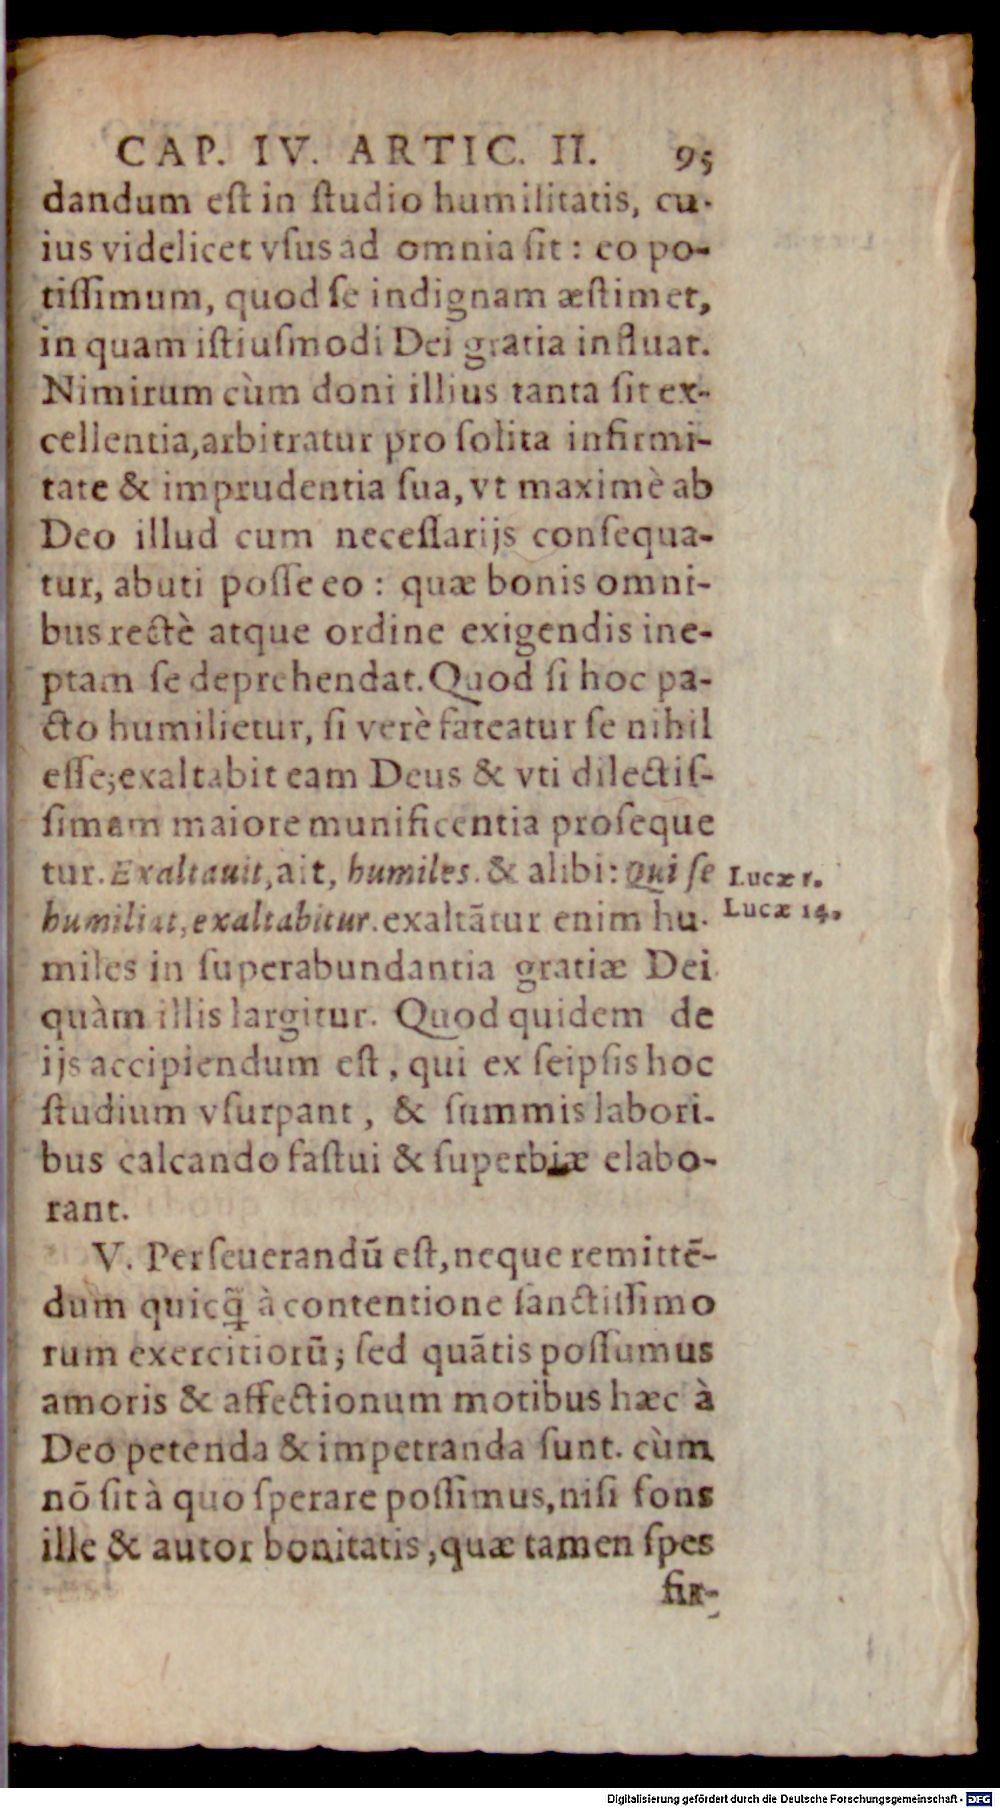 CAP. IV. ARTIC. II. 95
dandum eſt in ſtudio humilitatis, cu-
ius videlicet vſus ad omnia ſit: eo po-
tiſſimum, quod ſe indignam æſtimet,
in quam iſtiuſmodi Dei gratia influat.
Nimirum cùm doni illius tanta ſit ex-
cellentia, arbitratur pro ſolita infirmi-
tate & imprudentia ſua, vt maximè ab
Deo illud cum neceſſarijs conſequa-
tur, abuti poſſe eo: quæ bonis omni-
bus rectè atque ordine exigendis ine-
ptam ſe deprehendat. Quod ſi hoc pa-
cto humilietur, ſi verè fateatur ſe nihil
eſſe; exaltabit eam Deus & vti dilectiſ-
ſimam maiore munificentia proſeque
tur. Exaltauit, ait, humiles. & alibi: Qui ſe
Lucæ 1.
humiliat, exaltabitur. exaltãtur enim hu-
Lucæ 14.
miles in ſuperabundantia gratiæ Dei
quàm illis largitur. Quod quidem de
ijs accipiendum eſt, qui ex ſeipſis hoc
ſtudium vſurpant, & ſummis labori-
bus calcando faſtui & ſuperbiæ elabo-
rant.
V. Perſeuerandũ eſt, neque remittẽ-
dum quicq̃ à contentione ſanctiſſimo
rum exercitiorũ; ſed quãtis poſſumus
amoris & affectionum motibus hæc à
Deo petenda & impetranda ſunt. cùm
nõ ſit à quo ſperare poſſimus, niſi fons
ille & autor bonitatis, quæ tamen ſpes
fir-
Digitalisierung gefördert durch die Deutsche Forschungsgemeinschaft - DFG